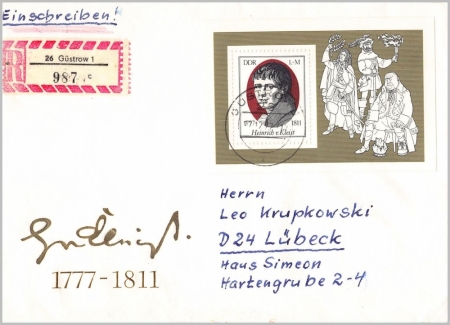 Einschreiben!
R
26 Güstrow 1
987 c
DDR 1,-M
1777 1811
Heinrich v. Kleist
Herrn
Leo Krupkowski
D24 Lübeck
Haus Simeon
Hartengrube 2-4
1777-1811